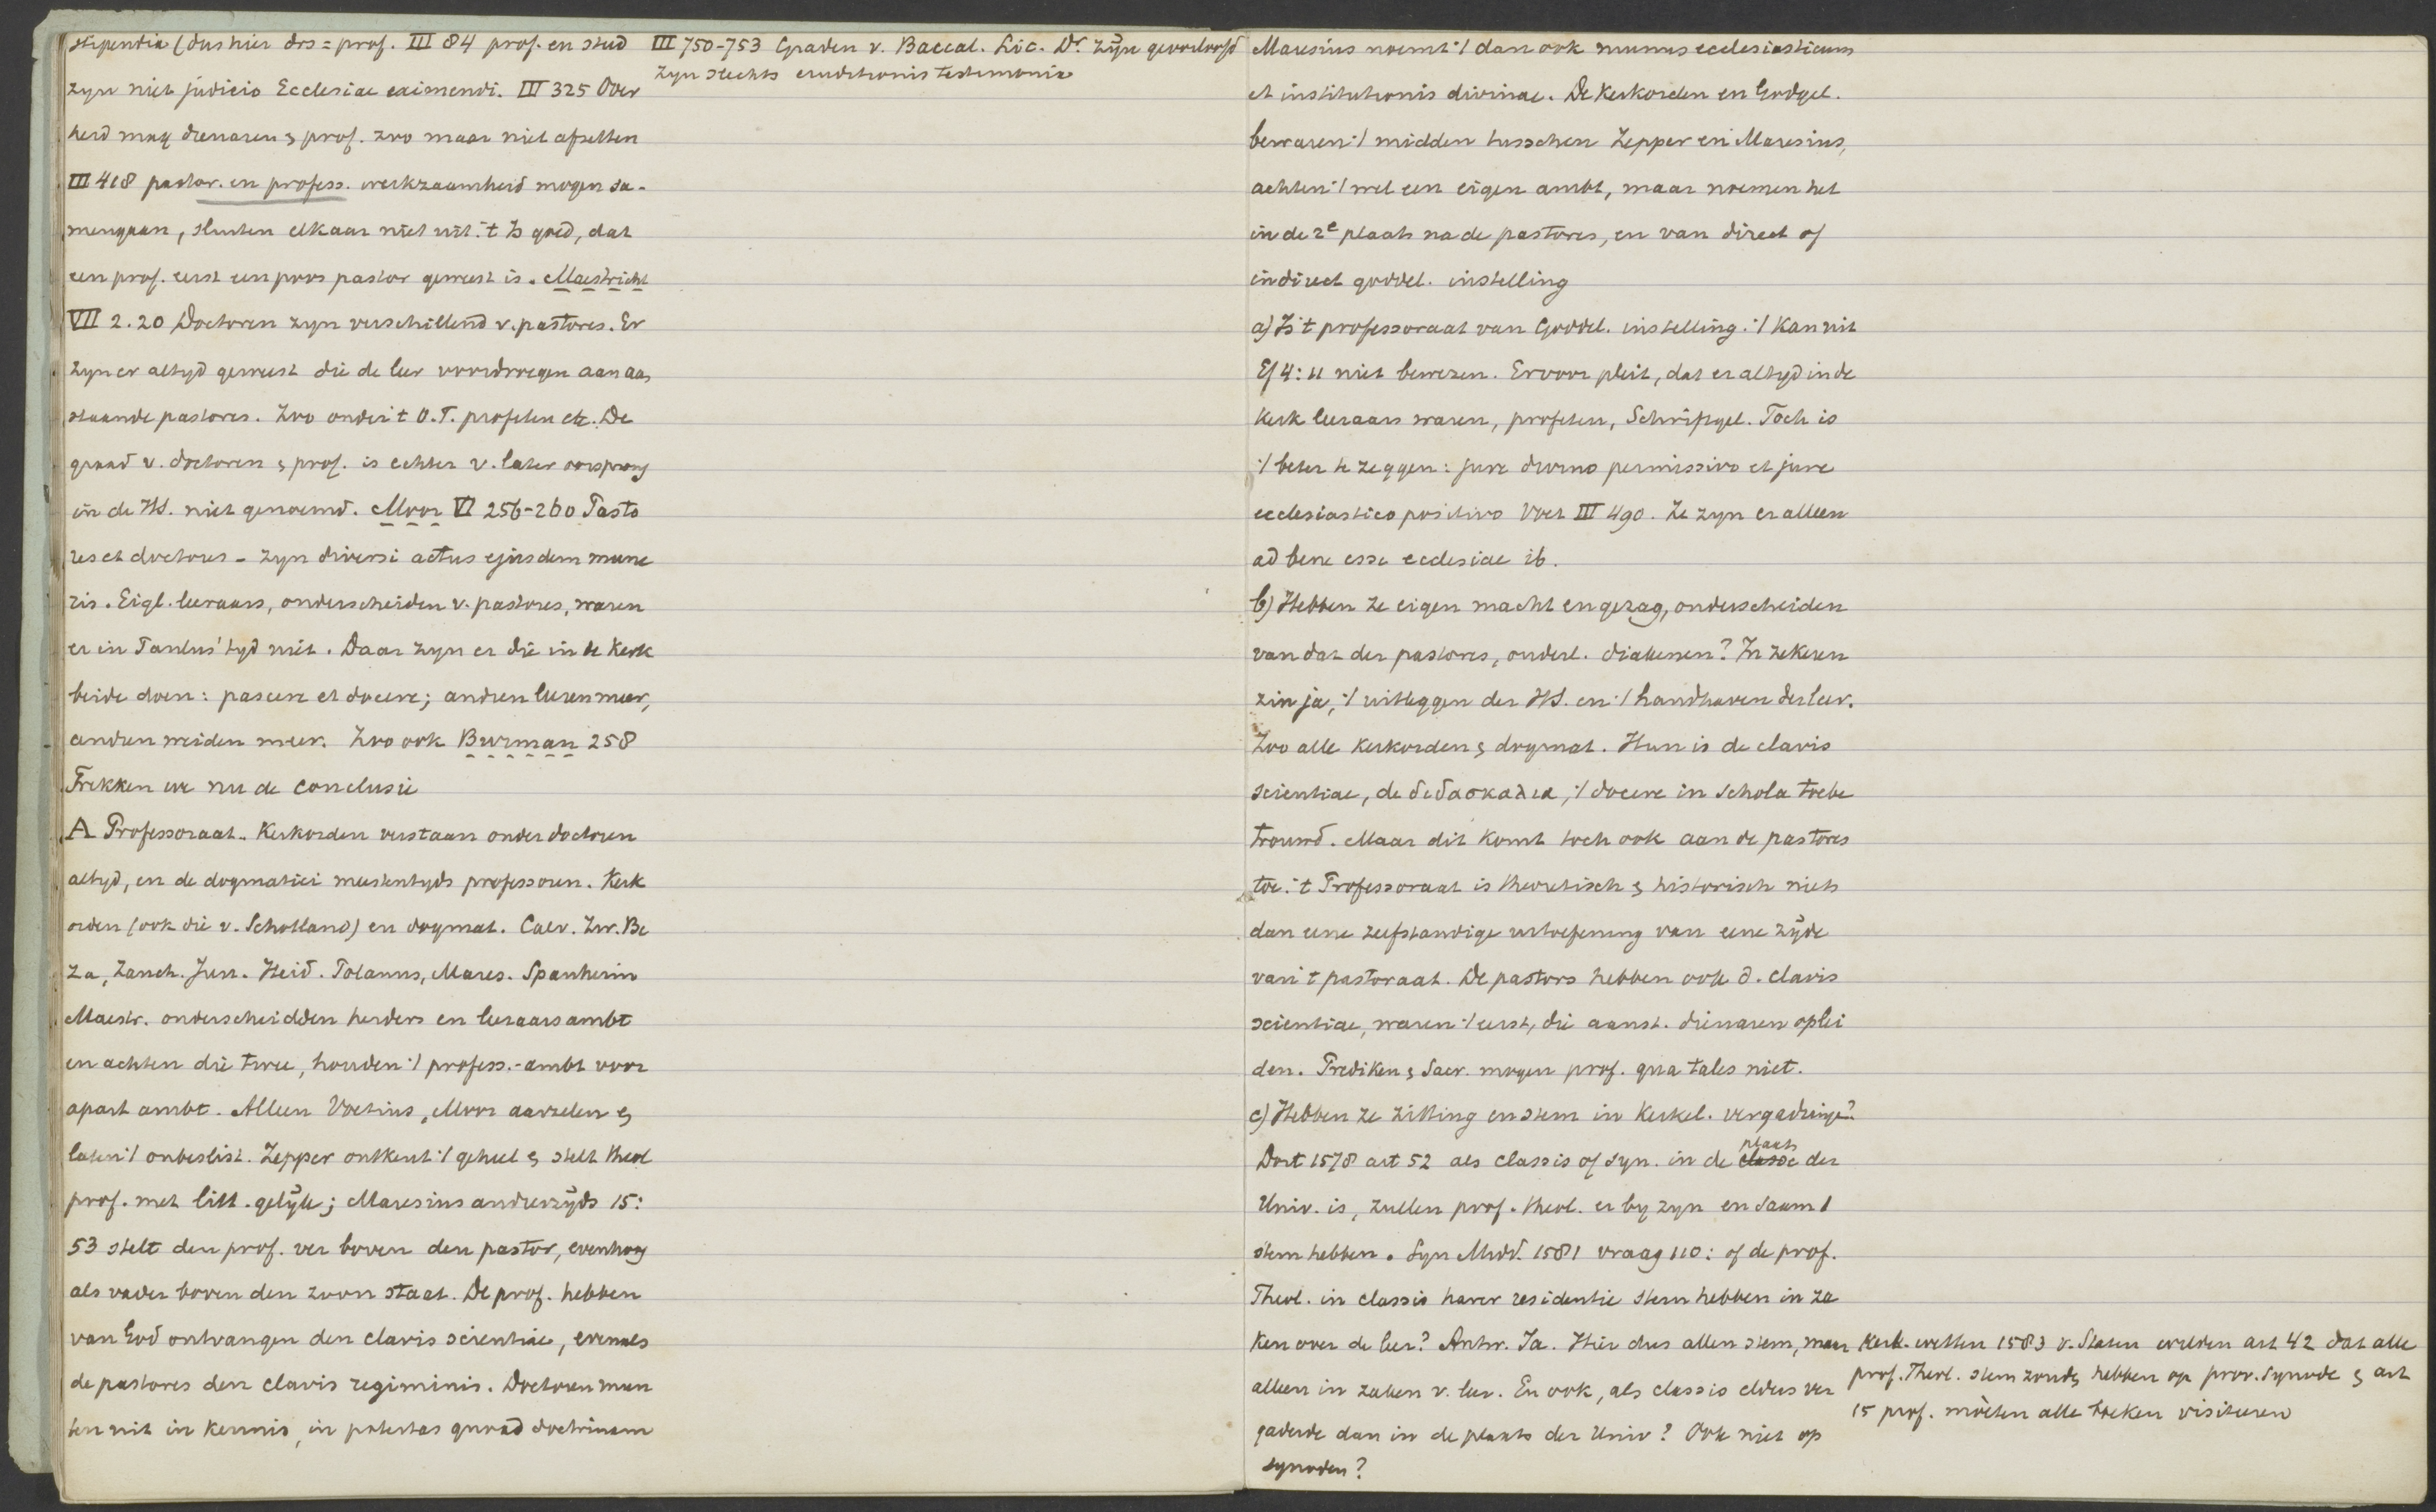 stipendia (dus hier drs = prof. III 84 prof. en stud
zyn niet judicio Ecclesiae eximendi. III 325 Over
heid mag dienaren & prof. zoo maar niet afzetten
III 418 pastor. en profess. werkzaamheid mogen sa-
mengaan, sluiten elkaar niet uit. 't Is goed, dat
een prof. eerst een poos pastor geweest is. Maestricht
VII 2.20 Doctoren zyn verschillend v. pastores. Er
zyn er altyd geweest die de leer voordroegen aan aan
staande pastores. Zoo onder 't O.T. profeten etc. De
graad v. doctoren & prof. is echter v. later oorsprong
in de H.S. niet genoemd. Moor VI 256-260 Pasto
res et doctores - zyn diversi actus ejusdem mune
ris. Eigl. leeraars, onderscheiden v. pastores, waren
er in Paulus' tyd niet. Daar zyn er die in de Kerk
beide doen: pascere et docere; andren leeren meer,
andren weiden meer. Zoo ook Burman 258
Trekken we nu de conclusie
A Professoraat. Kerkorden verstaan onder doctoren
altyd, en de dogmatici meestentyds professoren. Kerk
orden (ook die v. Schotland) en dogmat. Calv. Zw. Be
za, Zanch. Jun. Heid. Polanus, Mares. Spanheim
Maestr. onderscheidden herders en leeraarsambt
en achten die twee, houden ·/ profess.-ambt voor
apart ambt. Alleen Voetius, Moor aarzelen &
laten ·/ onbeslist. Zepper ontkent ·/ geheel & stelt theol
prof. met litt. gelÿk; Maresius anderzÿds 15:
53 stelt den prof. ver boven den pastor, evenhoog
als vader boven den zoon staat. De prof. hebben
van God ontvangen den clavis scientiae, evenals
de pastores den clavis regiminis. Doctoren mun
ten uit in kennis, in potestas quoad doctrinam
III 750-753 Graden v. Baccal. Lic. Dr. zÿn geoorloofd
zyn slechts eruditionis testimonia
Maresius noemt ·/ dan ook munus ecclesiasticum
et institutionis divinae. De Kerkorden en Godgel.
bewaren ·/ midden tusschen Zepper en Maresius,
achten ·/ wel een eigen ambt, maar noemen het
in de 2e plaats na de pastores, en van direct of
indirect goddel. instelling
a) Is 't professoraat van Goddel. instelling. ·/ Kan uit
Ef 4:11 niet bewezen. Ervoor pleit, dat er altyd in de
Kerk leeraars waren, profeten, Schriftgel. Toch is
·/ beter te zeggen: jure divino permissivo et jure
ecclesiastico positivo Voet III 490. Ze zyn er alleen
ad bene esse ecclesiae ib.
b) Hebben ze eigen macht en gezag, onderscheiden
van dat der pastores, ouderl. diakenen? In zekeren
zin ja, ·/ uitleggen der H.S. en ·/ handhaven der leer.
Zoo alle Kerkorden & dogmat. Hun is de clavis
scientiae, de διδασκαλια, ·/ docere in schola toebe
trouwd. Maar dit komt toch ook aan de pastores
toe. 't Professoraat is theoretisch & historisch niets
dan eene zelfstandige uitoefening van eene zÿde
van 't pastoraat. De pastors hebben ook d. clavis
scientiae, waren ·/ eerst, die aanst. dienaren oplei
den. Prediken & Sacr. mogen prof. qua tales niet.
c) Hebben ze zitting en stem in Kerkel. vergaderinge?
Dort 1578 art 52 als classis of syn. in de classe plaats der
Univ. is, zullen prof. theol. er by zyn en saam 1
stem hebben. Syn Midd. 1581 vraag 110: of de prof.
Theol. in classis harer residentie stem hebben in za
ken over de leer? Antw. Ja. Hier dus allen stem, maar
alleen in zaken v. leer. En ook, als classis elders ver
gaderde dan in de plaats der Univ? Ook niet op
synoden?
Kerk. wetten 1583 v. Staten wilden art 42 dat alle
prof. Theol. stem zoude hebben op prov. synode & art
15 prof. moeten alle boeken visiteeren